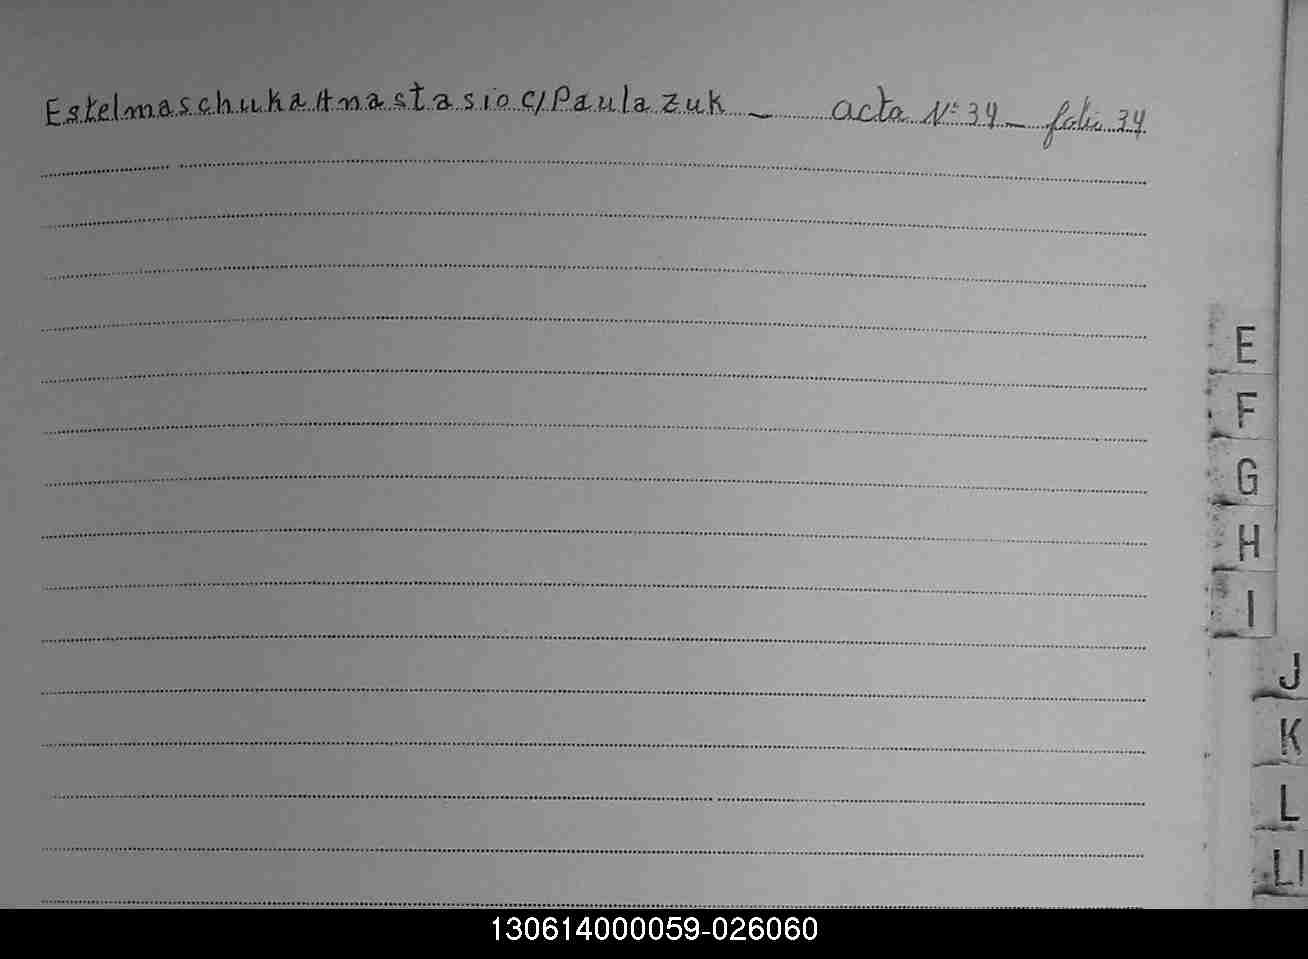 Estelmaschuka Anastasio c/ Paula Zuk _ acta Nº 34 _ folio 34
E
F
G
H
I
J
K
L
Ll
130614000059-026060